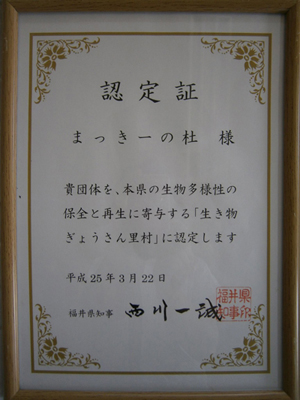 認定証
まっきーの杜 様
貴団体を、本県の生物多様性の
保全と再生に寄与する「生き物
ぎょうさん里村」に認定します
平成25年3月22日
福井県知事 西川一誠
福井県
知事印